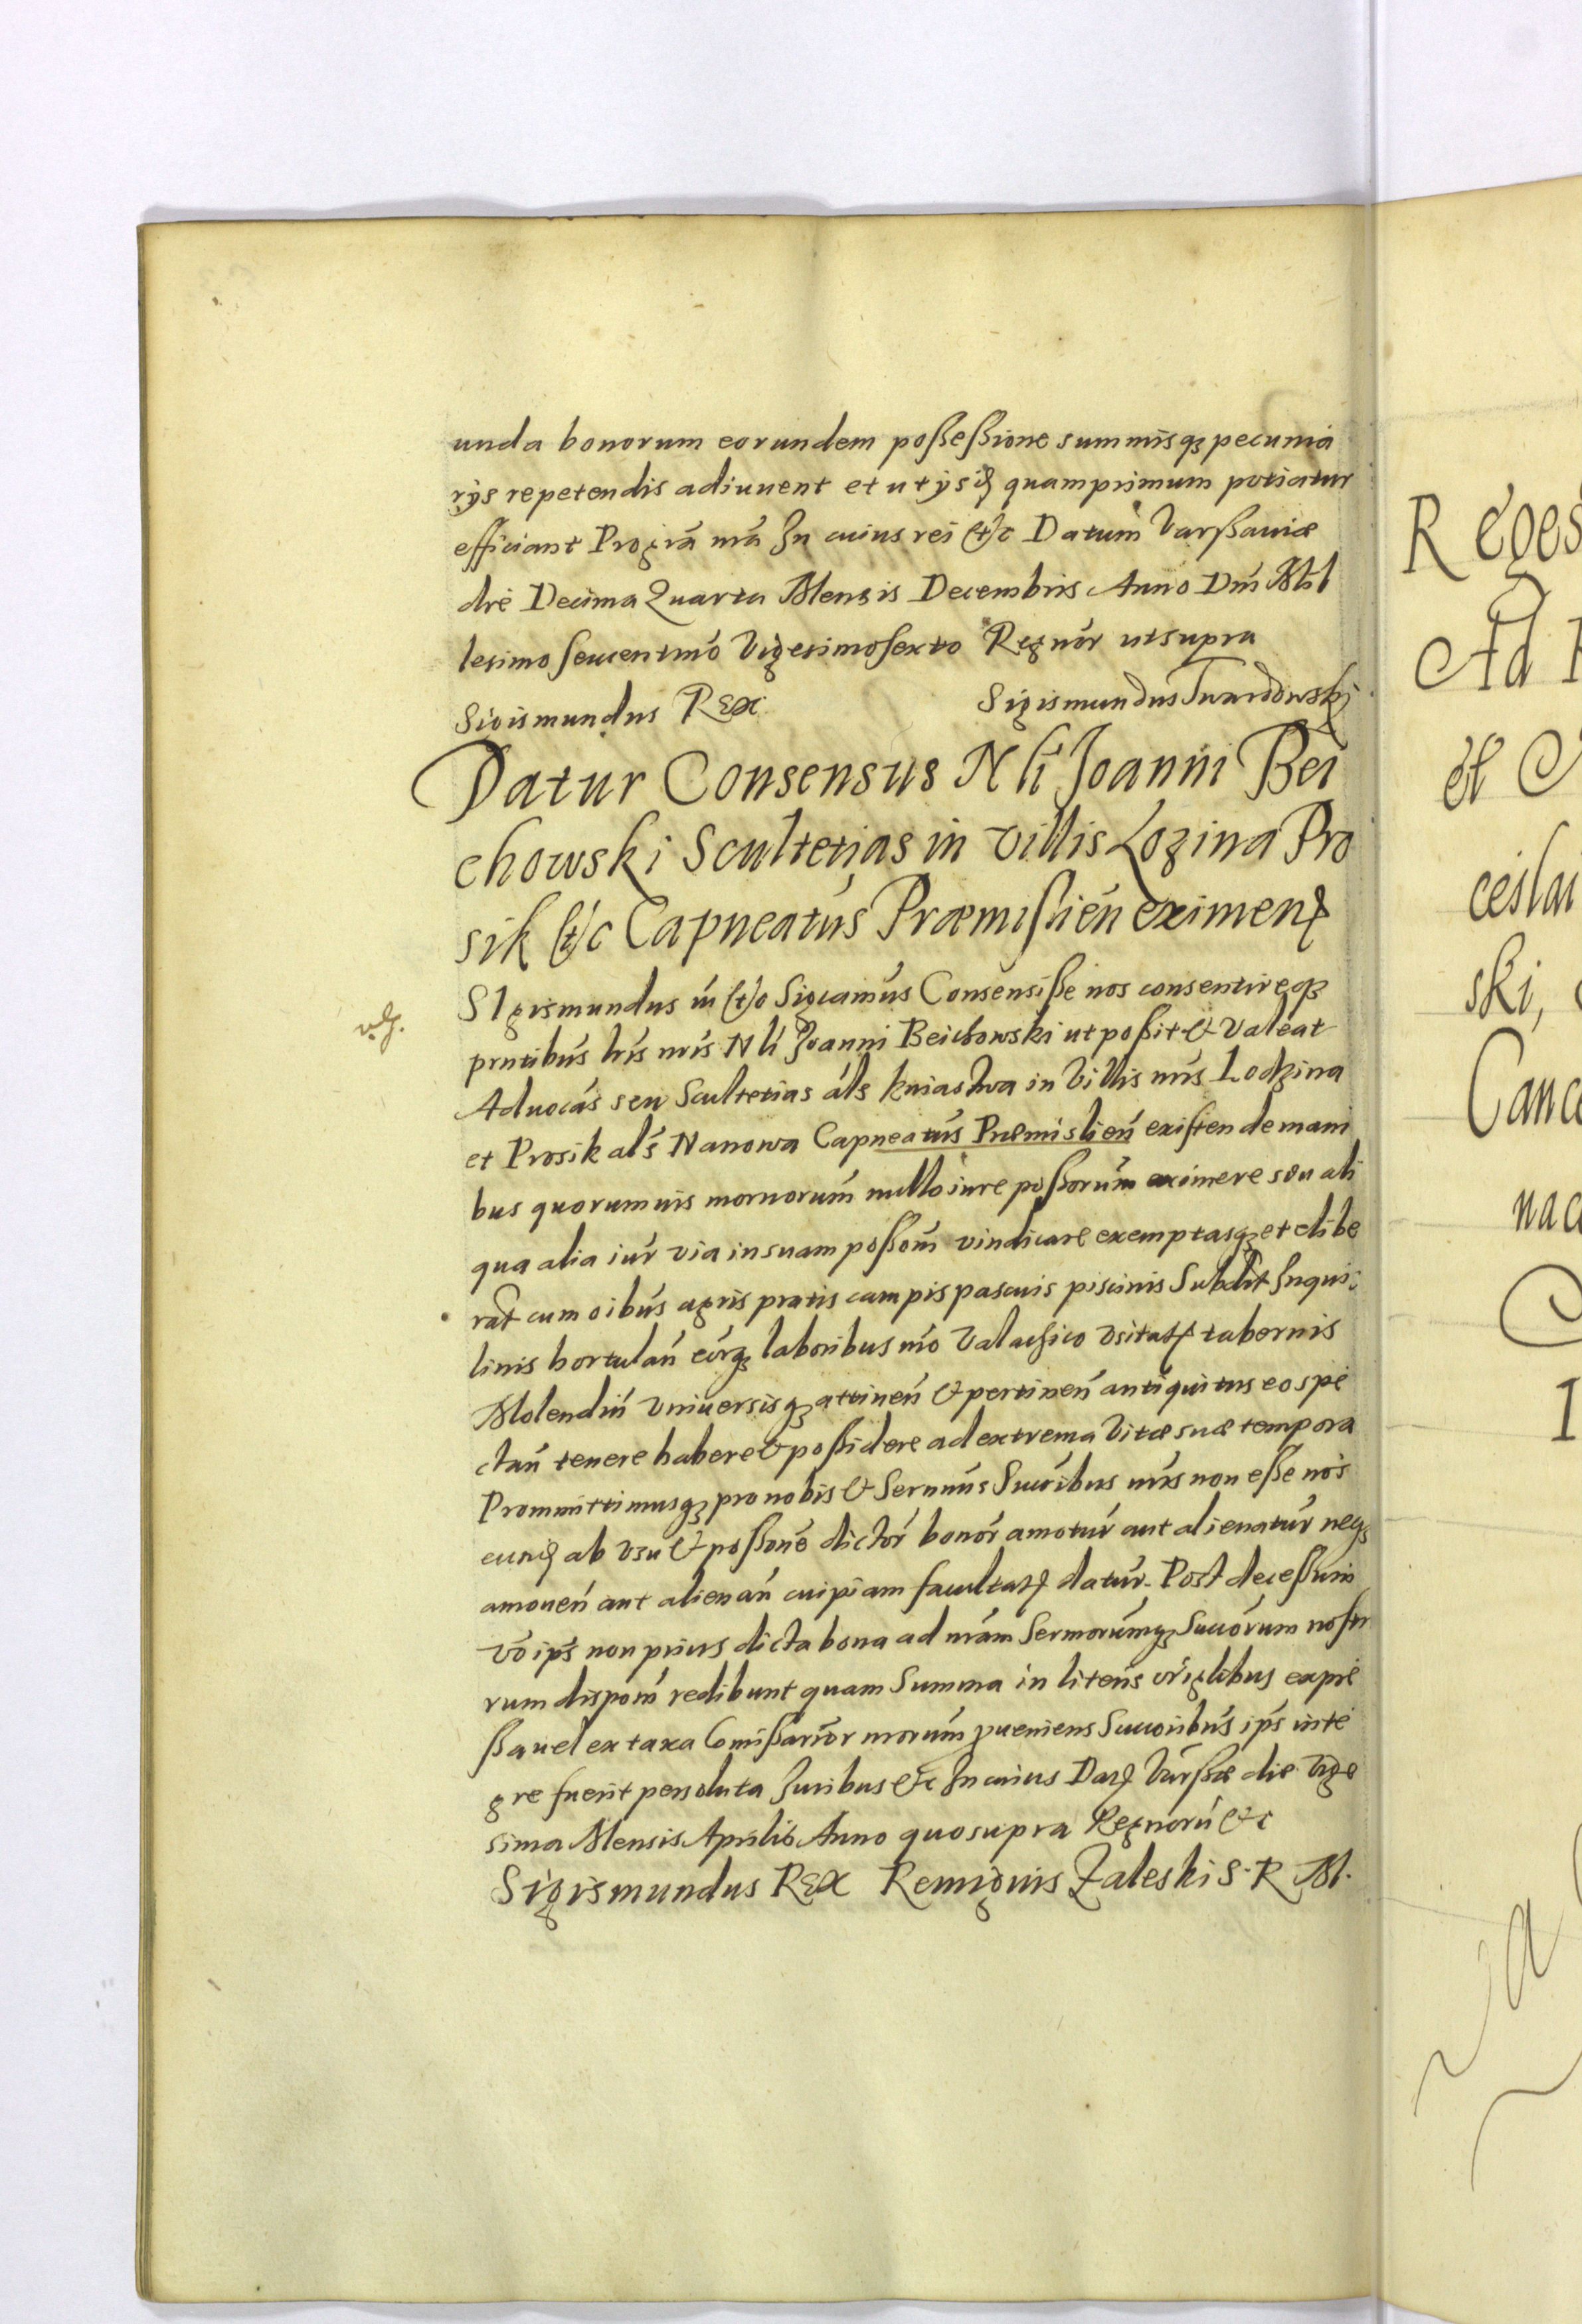 unda bonorum eorundem poßeßione summisqꝫ pecunia
rijs repetendis adiuuent et ut ijsdꝫ quamprimum potiatur
efficiant Pro gra͂ nra͂ In cuius rei &c Datum Varßauiæ
die Decima Quarta Mensis Decembris Anno Dni Mil
lesimo sexcentmo Vigesimosexto Regnor utsupra
Sigismundus REx Sigismundus Twardowski
Datur Consensus Nli Joanni Bei
chowski Scultetias in villis Lozina Pro
sik &c Capneatus Præmislien eximend
SIgismundus III &c Sigcamus Consensiße nos consentireqꝫ
prntibus lris nris Nli Joanni Beichowski ut poßit & Valeat
Aduocas seu Scultetias als kniastwa in Villis nris Lodzina
et Prosik als Nanowa Capneatus Præmislien existen de mani
bus quorumuis mornorum nullo iure poßorum eximere seu ali
qua alia iur via in suam poßom vindicare exemptasqꝫ et elibe
rat cum oibus agris pratis campis pascuis piscinis Subdit Inqui
linis hortulan eorqꝫ laboribus mo Valachico vsitat tabernis
Molendin vniuersisqꝫ attinen & pertinen antiquitus eo spe
ctan tenere habere & poßidere ad extrema Vitæ suæ tempora
Prommittimusqꝫ pro nobis & Sermis Succribus nris non eße nos
eundꝫ ab vsu & poßone dictor bonor amotur aut alienatur neqꝫ
amouen aut alienan cuipiam facultat datur. Post deceßum
vo ips non prius dicta bona ad nram Sermorumqꝫ Succorum nostr
rum dispom redibunt quam Summa in literis origlibus expre
ßa uel ex taxa Comißarior nrorum proueniens Succoribus ips inte
gre fuerit persoluta Juribus &c In cuius Dat Varßæ die Vige
sima Mensis Aprilis Anno quo supra Regnoru &c
Sigismundus REX Remigius Zaleski S. R M.
R eges
Ad
et
ceslai
ski,
Canc
nac
I